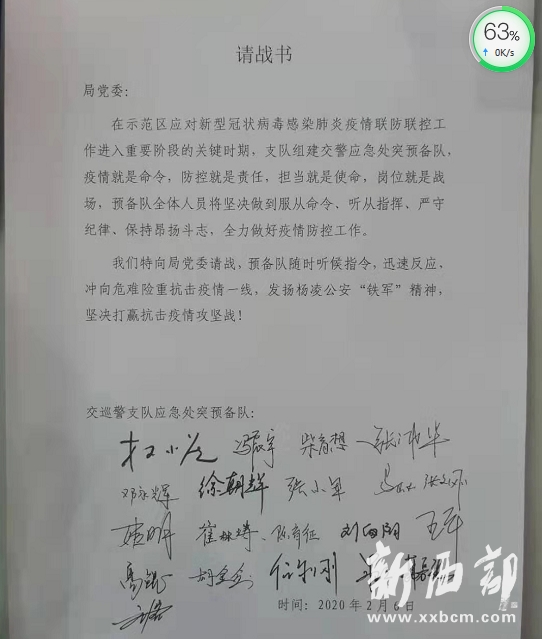 63%
0K/s
请战书
局党委：
在示范区应对新型冠状病毒感染肺炎疫情联防联控工
作进入重要阶段的关键时期，支队组建交警应急处突预备队，
疫情就是命令，防控就是责任，担当就是使命，岗位就是战
场，预备队全体人员将坚决做到服从命令、听从指挥、严守
纪律、保持昂扬斗志，全力做好疫情防控工作。
我们特向局党委请战，预备队随时听候指令，迅速反应，
冲向危难险重抗击疫情一线，发扬杨凌公安“铁军”精神，
坚决打赢抗击疫情攻坚战！
交巡警支队应急处突预备队：
柴育想
邓永辉 徐朝辉 张小军
王军
时间：2020年2月6日
新西部
www.xxbcm.com